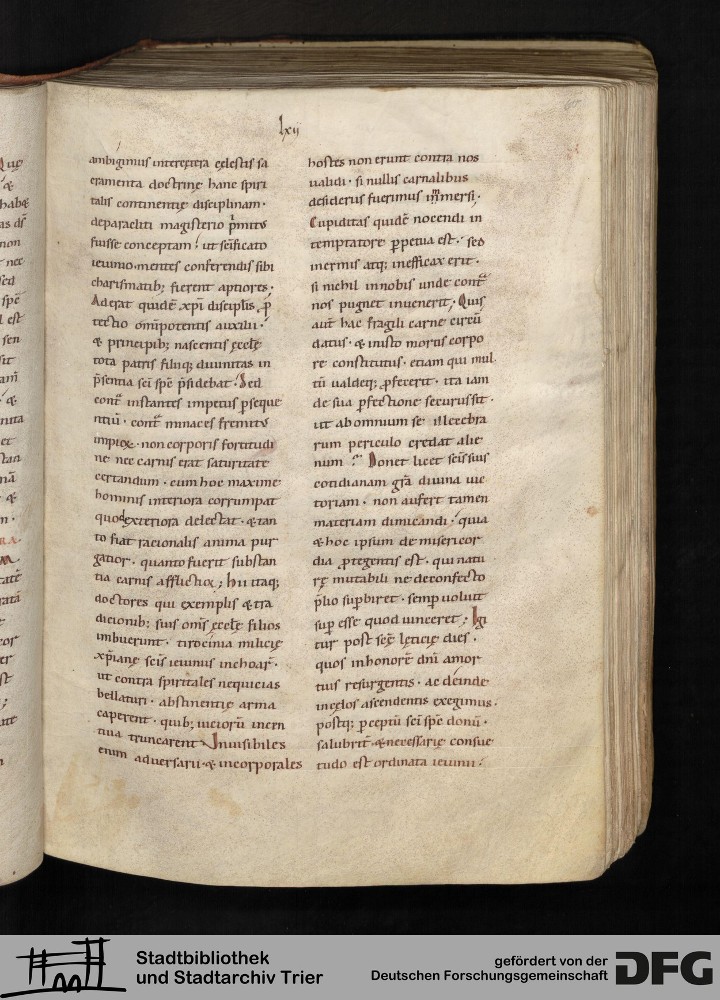 lxii
ambigimus inter cętera cęlestis sa
cramenta doctrinę hanc spiri
talis continentię disciplinam·
de paracliti magisterio p̄mit᷒
fuisse conceptam· ut sc̄ificato
ieiunio mentes conferendis sibi
charismatib; fierent aptiores·
Aderat quidē xp̄i discipl̄is p̄
tectio omīpotentis auxilii·
& principib; nascentis ęcclę
tota patris filiiq; diuinitas in
p̄sentia sc̄i sp̄c p̄sidebat· Sed
cont̄ instantes impetus p̄seque
ntiū· cont̄ minaces fremit᷒
impioꝝ· non corporis fortitudi
ne nec carnis erat saturitate
certandum· cum hoc maxime
hominis interiora corrumpat
quod exteriora delectat· & tan
to fiat racionalis anima pur
gatior· quanto fuerit substan
tia carnis afflictior; Hii itaq;
doctores qui exemplis & tra
dicionib; suis om̄s ęcclę filios
imbuerunt· tirocinia milicię
xp̄ianę sc̄is ieiuniis inchoar̄·
ut contra spiritales nequicias
bellaturi· abstinentię arma
caperent· quib; uiciorū incen
tiua truncarent Inuisibiles
enim aduersarii & incorporales
hostes non erunt contra nos
ualidi· si nullis carnalibus
desideriis fuerimus immersi·
Cupiditas quidē nocendi in
temptatore p̱petua est· sed
inermis atq; inefficax erit·
si nichil in nobis unde cont̄
nos pugnet inuenerit· Quis
aut̄ hac fragili carne circū
datus· & in isto mortis corpo
re constitutus· etiam qui mul
tū ualdeq; p̱fecerit· ita iam
de sua p̱fectione securus sit·
ut ab omnium se illecebra
rum periculo credat alie
num Donet licet sc̄is suis
cotidianam grā diuina uic
toriam· non aufert tamen
materiam dimicandi· quia
& hoc ipsum de misericor
dia p̱tegentis est· qui natu
rę mutabili ne de confecto
p̄lio sup̱biret· semp̱ uoluit
sup̱ esse quod uinceret; Igi
tur post scē lęticię dies·
quos in honorē dn̄i a mor
tuis resurgentis· ac deinde
in cęlos ascendentis exegimus·
postq; p̱ceptū sc̄i sp̄c donū·
salubrit̄ & necessarię consue
tudo est ordinata ieiunii·
Stadtbibliothek
und Stadtarchiv Trier
gefördert von der
Deutschen Forschungsgemeinschaft
DFG